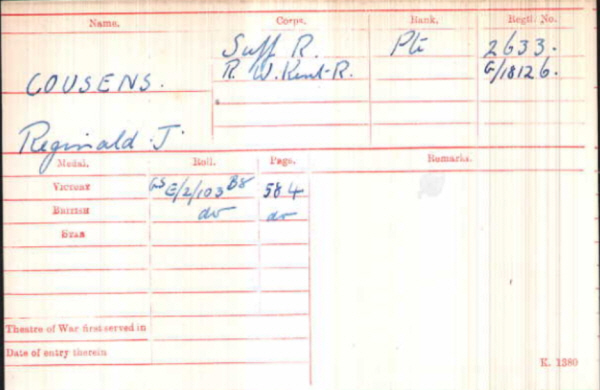 Name. Corps. Rank. Regtl. No.
Suff R. Pte 2633.
COUSENS. R. W. Kent. R. G/18126.
Reginald J.
Medal. Roll. Page. Remarks.
VICTORY E/2/103 B8 584
BRITISH do do
STAR
Theatre of War first served in
Date of entry therein
K. 1380